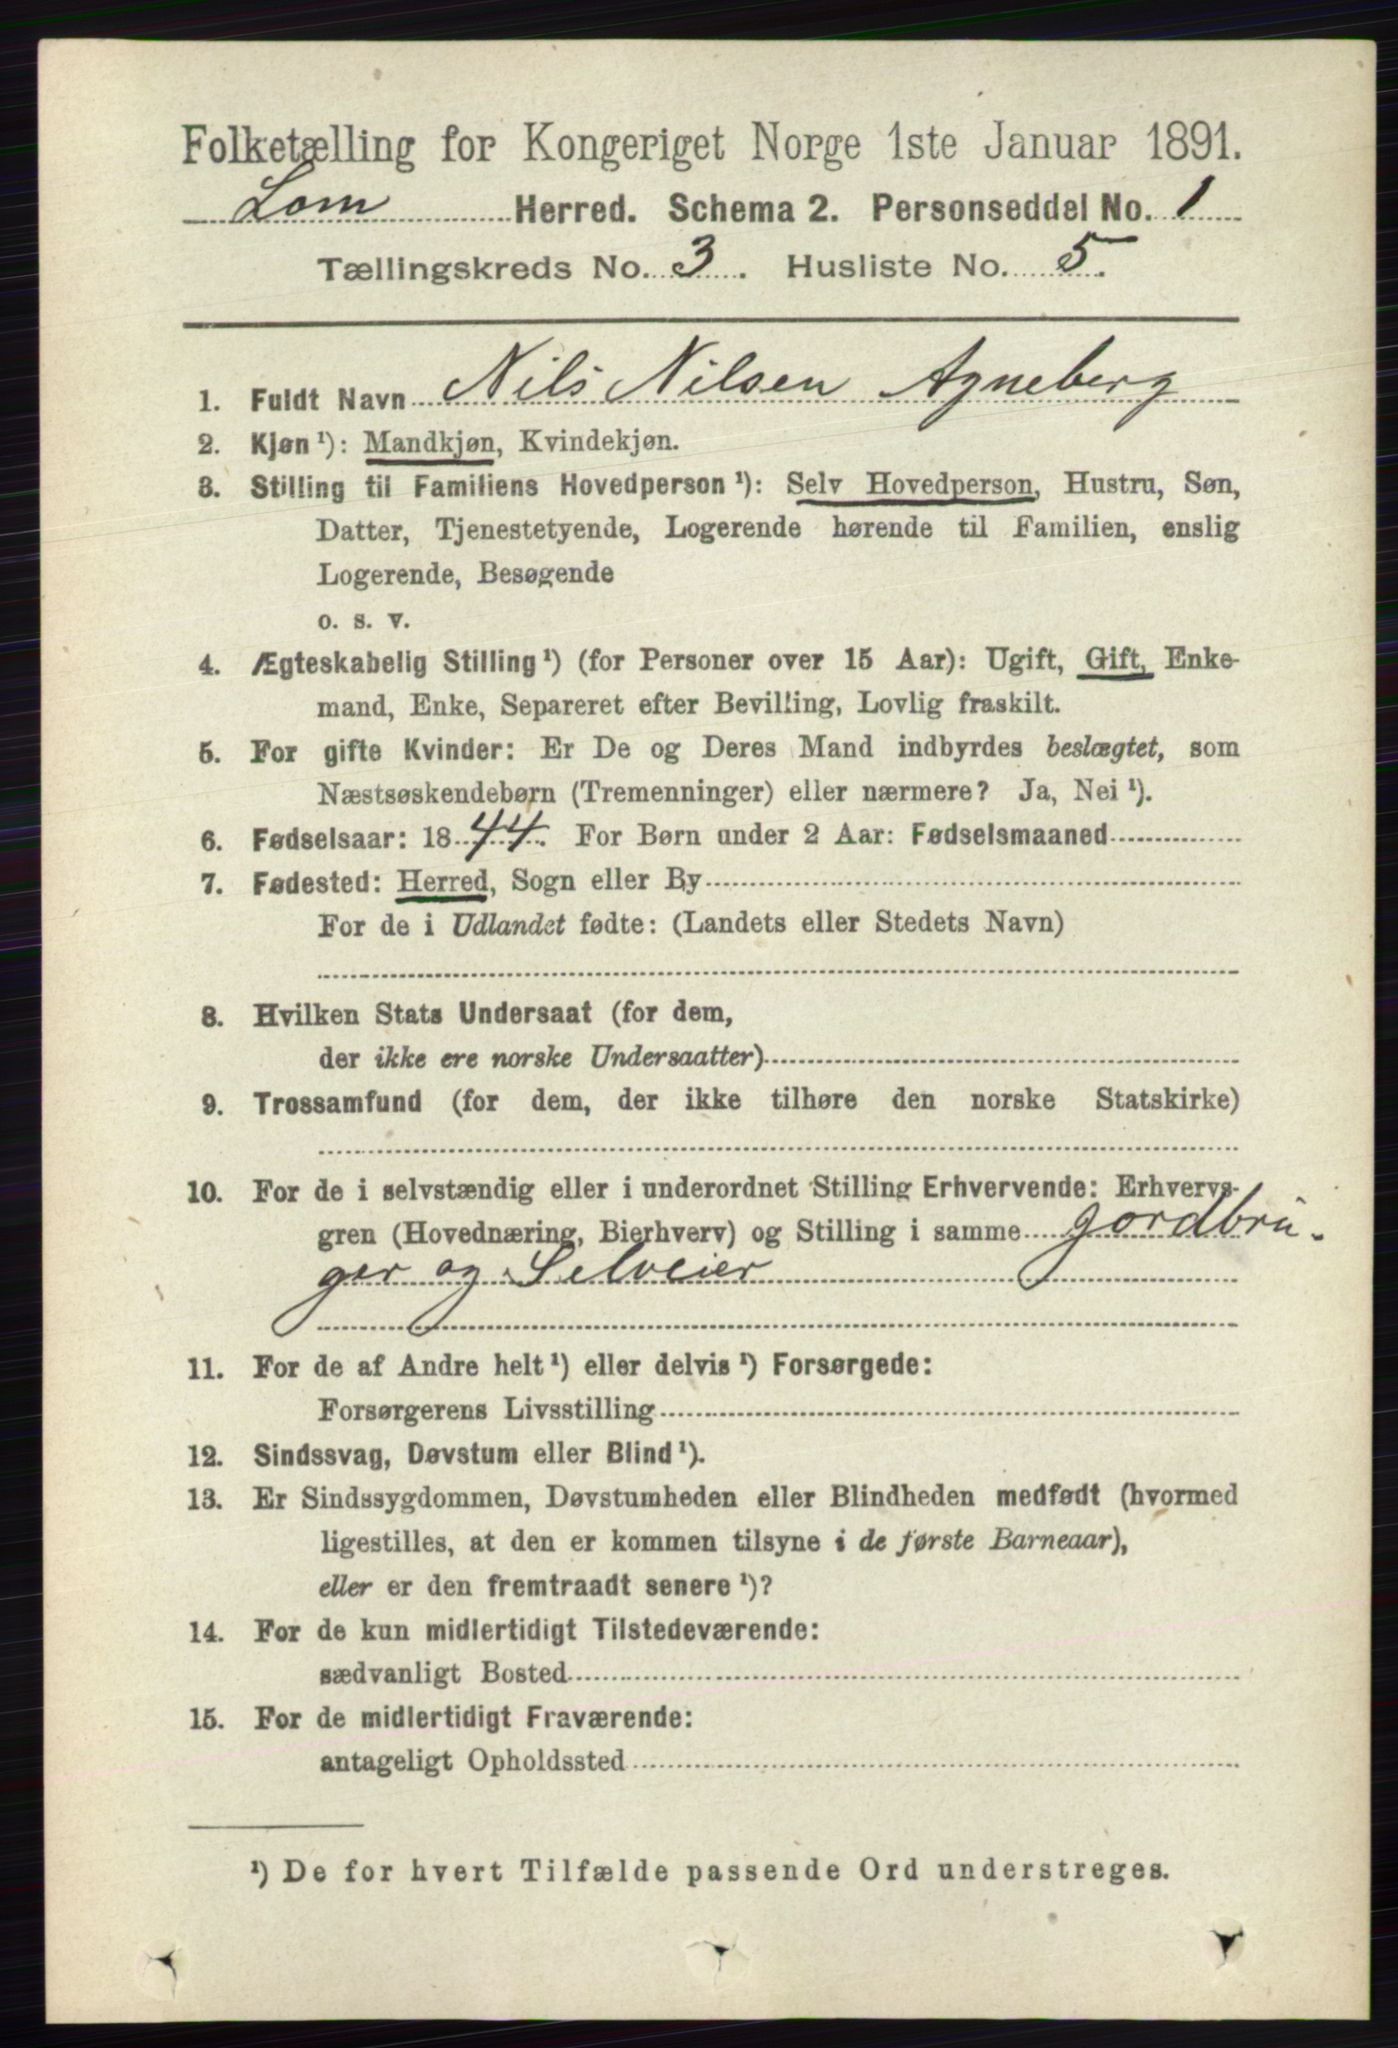 Folketælling for Kongeriget Norge 1ste Januar 1891.
Lom Herred. Schema 2. Personseddel No. 1
Tællingskreds No. 3. Husliste No. 5.
1. Fuldt Navn Nils Nilsen Agneberg
2. Kjøn ¹): Mandkjøn, Kvindekjøn.
3. Stilling til Familiens Hovedperson ¹): Selv Hovedperson, Hustru, Søn,
Datter, Tjenestetyende, Logerende hørende til Familien, enslig
Logerende, Besøgende
o. s. v.
4. Ægteskabelig Stilling ¹) (for Personer over 15 Aar): Ugift, Gift, Enke-
mand, Enke, Separeret efter Bevilling, Lovlig fraskilt.
5. For gifte Kvinder: Er De og Deres Mand indbyrdes beslægtet, som
Næstsøskendebørn (Tremenninger) eller nærmere? Ja, Nei ¹).
6. Fødselsaar: 1844. For Børn under 2 Aar: Fødselsmaaned
7. Fødested: Herred, Sogn eller By
For de i Udlandet fødte: (Landets eller Stedets Navn)
8. Hvilken Stats Undersaat (for dem,
der ikke ere norske Undersaatter)
9. Trossamfund (for dem, der ikke tilhøre den norske Statskirke)
10. For de i selvstændig eller i underordnet Stilling Erhvervende: Erhvervs-
gren (Hovednæring, Bierhverv) og Stilling i samme gordbrü-
ger og Selveier
11. For de af Andre helt ¹) eller delvis ¹) Forsørgede:
Forsørgerens Livsstilling
12. Sindssvag, Døvstum eller Blind ¹).
13. Er Sindssygdommen, Døvstumheden eller Blindheden medfødt (hvormed
ligestilles, at den er kommen tilsyne i de første Barneaar),
eller er den fremtraadt senere ¹)?
14. For de kun midlertidigt Tilstedeværende:
sædvanligt Bosted
15. For de midlertidigt Fraværende:
antageligt Opholdssted
¹) De for hvert Tilfælde passende Ord understreges.